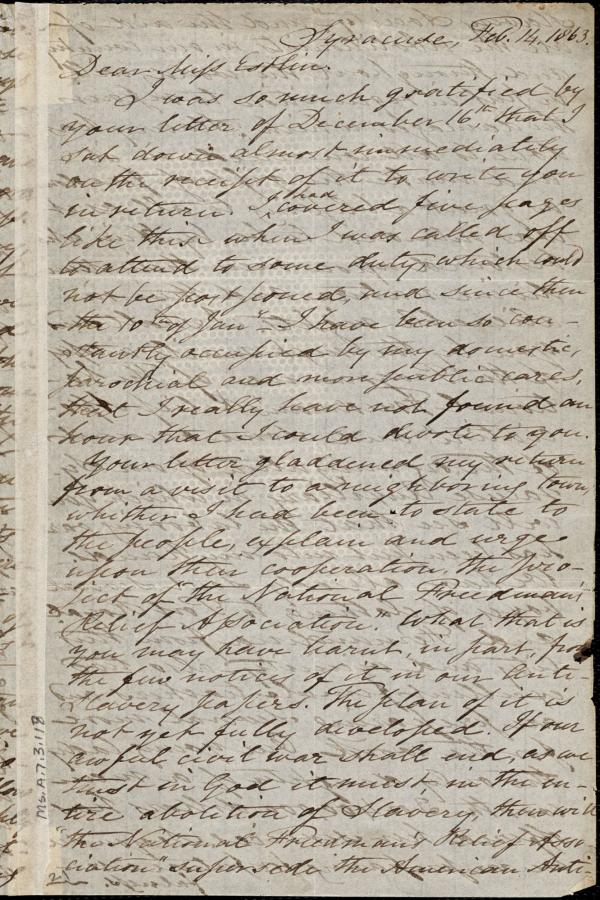 Syracuse, Feb. 14, 1863.
Dear Miss Estlin.
I was so much gratified by
your letter of December 16th that I
sat down almost immediately
on the receipt of it to write you
in return. I had covered five pages
like this when I was called off
to attend to some duty, which could
not be postponed, and since then
the 10th of Jany I have been so con-
stantly occupied by my domestic,
parochial and more public cares,
that I really have not found an
hour that I could devote to you.
Your letter gladdened my return
from a visit to a neighboring town,
whither I had been to state to
the people, explain and urge
upon their cooperation, the pro-
ject of "the National Freedman's
Relief Association." What that is
you may have learnt, in part, from
the few notices of it in our Anti-
Slavery papers. The plan of it is
not yet fully developed. If our
awful civil war shall end, as we
trust in God it must, in the en-
tire abolition of Slavery, then will
"the National Freedman's Relief Asso-
ciation" supersede the American Anti-
Ms.A.7.3.11B